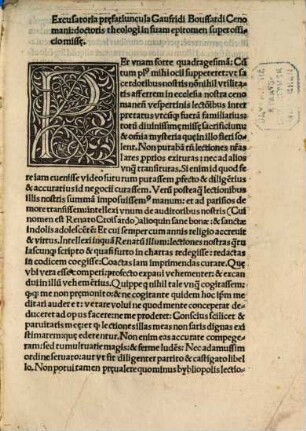 Excusatoria prefatiuncula Gaufridi Boussardi Ceno
mani: doctoris theologi in suam epitomen super offi
cio misse.
PEr vnam forte quadragesimā: Cū
tum pl⁹ mihi ocii suppeteret: vt sa
cerdotibus nostris nōnihil vtilita
tis afferrem in ecclesia nostra ceno
manēsi vespertinis lectiōibus inter
pretatus
diuinissimū misse sacrificium: &
omnia mysteria que in illo fieri sole
lent. Non putabā tn̄ lectiones nr̄as
lares pprios exituras: nec ad alios
vnq̄ transituras. Si enim id quod se
re iam euenisse video futurum putassem pfecto & diligētius
& accuratius id negocii curassem. Verū posteaq̄ lectionibus
illis nostris summā imposuissem⁹ manum: et ad parisios de
more transissem: intellexi vnum de auditoribus nostris (Cui
nomen est Renato Croisardo) alioquin sane bonæ: & sanctæ
indolis adolescētē: Et cui semper cum annis religio accreuit
& virtus. Intellexi inquā Renatū illum: lectiones nostras
scripto & quasi furto in chartas redegisse: redactas
in codicem coegisse: Coactas iam imprimendas curare. Que
vbi vera esse comperi: profecto expaui vehementer: & excan
dui in illū vehemētius. Quippe nihil tale vnq̄ cogitassem:
me non premonito: & ne cogitante quidem hoc
ditari audere: vt vetare volui ne quod mente conceperat de
duceret ad opus facere: ne me proderet. Conscius scilicet &
paruitatis mee: et lectiones illas meas non satis dignas exi
stimarem que ederentur. Non enim eas accurate compege
ram: sed tumultuarie magis: & ferme ludēs: Nec ad amussim
ordine seruato: aut vt fit diligenter partito & castigato libel
lo. Non potui tamen preualere quominus bybliopolis lectio⸗